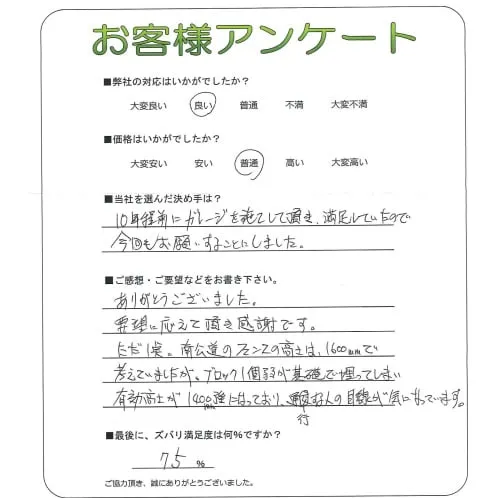 お客様アンケート
■弊社の対応はいかがでしたか?
大変良い 良い 普通 不満 大変不満
■価格はいかがでしたか?
大変安い 安い 普通 高い 大変高い
■当社を選んだ決め手は?
10年程前にガレージを施工して頂き、満足していたので
今回もお願いすることにしました。
■ご感想・ご要望などをお書き下さい。
ありがとうございました。
要望に応えて頂き感謝です。
ただ1点。南公道のフェンスの高さは、1600mmで
考えていましたが、ブロック1個分が基礎で埋ってしまい
有効高さが1400強になっており、通行する人の目線が気になっています。
■最後に、ズバリ満足度は何%ですか?
75 %
ご協力頂き、誠にありがとうございました。